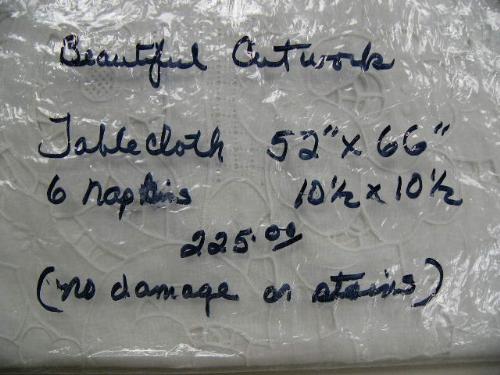 Beautiful Cutwork
Tablecloth 52" x 66"
6 napkins 10½ x 10½
225.00
(no damage or stains)